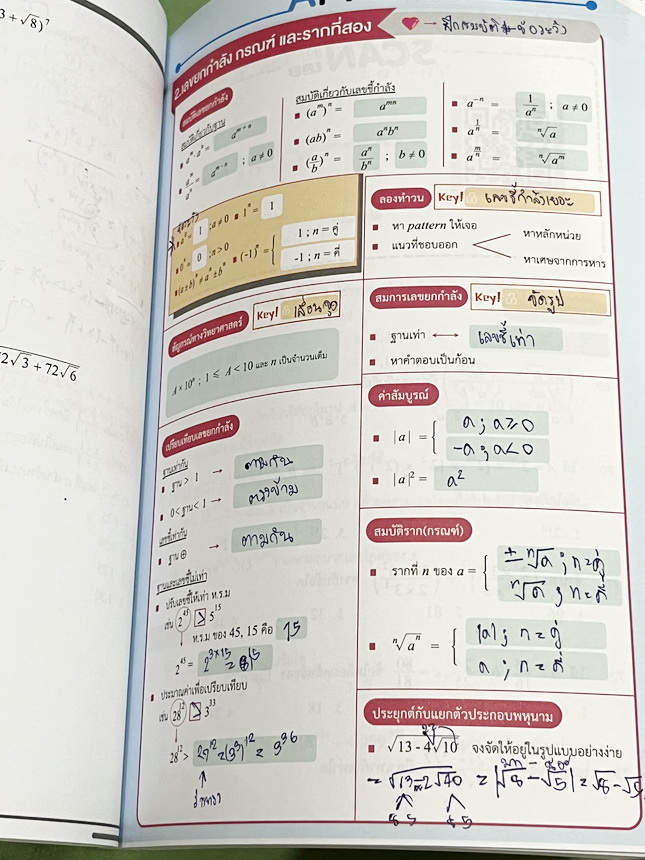 3 + √8)⁷
2√3 + 72√6
2.เลขยกกำลัง กรณฑ์ และรากที่สอง
สมบัติเลขยกกำลัง
สมบัติเกี่ยวกับฐาน
aᵐ · aⁿ = aᵐ⁺ⁿ
aᵐ/aⁿ = aᵐ⁻ⁿ ; a ≠ 0
สมบัติเกี่ยวกับเลขชี้กำลัง
(aᵐ)ⁿ = aᵐⁿ
(ab)ⁿ = aⁿbⁿ
(a/b)ⁿ = aⁿ/bⁿ ; b ≠ 0
a⁻ⁿ = 1/aⁿ ; a ≠ 0
a^(1/n) = ⁿ√a
a^(m/n) = ⁿ√aᵐ
a⁰ = 1 ; a ≠ 0
1ⁿ = 1
0ⁿ = 0 ; n > 0
(-1)ⁿ = { 1 ; n = คู่
-1 ; n = คี่
(a ± b)ⁿ ≠ aⁿ ± bⁿ
สัญกรณ์ทางวิทยาศาสตร์
Key! เลื่อนจุด
A × 10ⁿ ; 1 ⩽ A < 10 และ n เป็นจำนวนเต็ม
เปรียบเทียบเลขยกกำลัง
ฐานเท่ากัน
ฐาน > 1 → ตามกัน
0 < ฐาน < 1 → ตรงข้าม
เลขชี้เท่ากัน
ฐาน ⊕ → ตามกัน
ฐานและเลขชี้ไม่เท่า
ปรับเลขชี้ให้เท่า ห.ร.ม
เช่น 2⁴⁵ > 5¹⁵
ห.ร.ม ของ 45, 15 คือ 15
2⁴⁵ = 2³ˣ¹⁵ = 8¹⁵
ประมาณค่าเพื่อเปรียบเทียบ
เช่น 28¹² > 3³³
28¹² > 27¹² = (3³)¹² = 3³⁶
ลองทำวน
Key! เลขชี้กำลังเยอะ
หา pattern ให้เจอ
แนวที่ชอบออก
หาหลักหน่วย
หาเศษจากการหาร
สมการเลขยกกำลัง
Key! จัดรูป
ฐานเท่า ↔ เลขชี้เท่า
หาคำตอบเป็นก้อน
ค่าสัมบูรณ์
|a| = { a ; a ≥ 0
-a ; a < 0
|a|² = a²
สมบัติราก(กรณฑ์)
รากที่ n ของ a = { ± ⁿ√a ; n = คู่
ⁿ√a ; n = คี่
ⁿ√aⁿ = { |a| ; n = คู่
a ; n = คี่
ประยุกต์กับแยกตัวประกอบพหุนาม
√(13 - 4√10) จงจัดให้อยู่ในรูปแบบอย่างง่าย
= √(13 - 2√40) = |√8 - √5| = √8 - √5
8 5 8 5